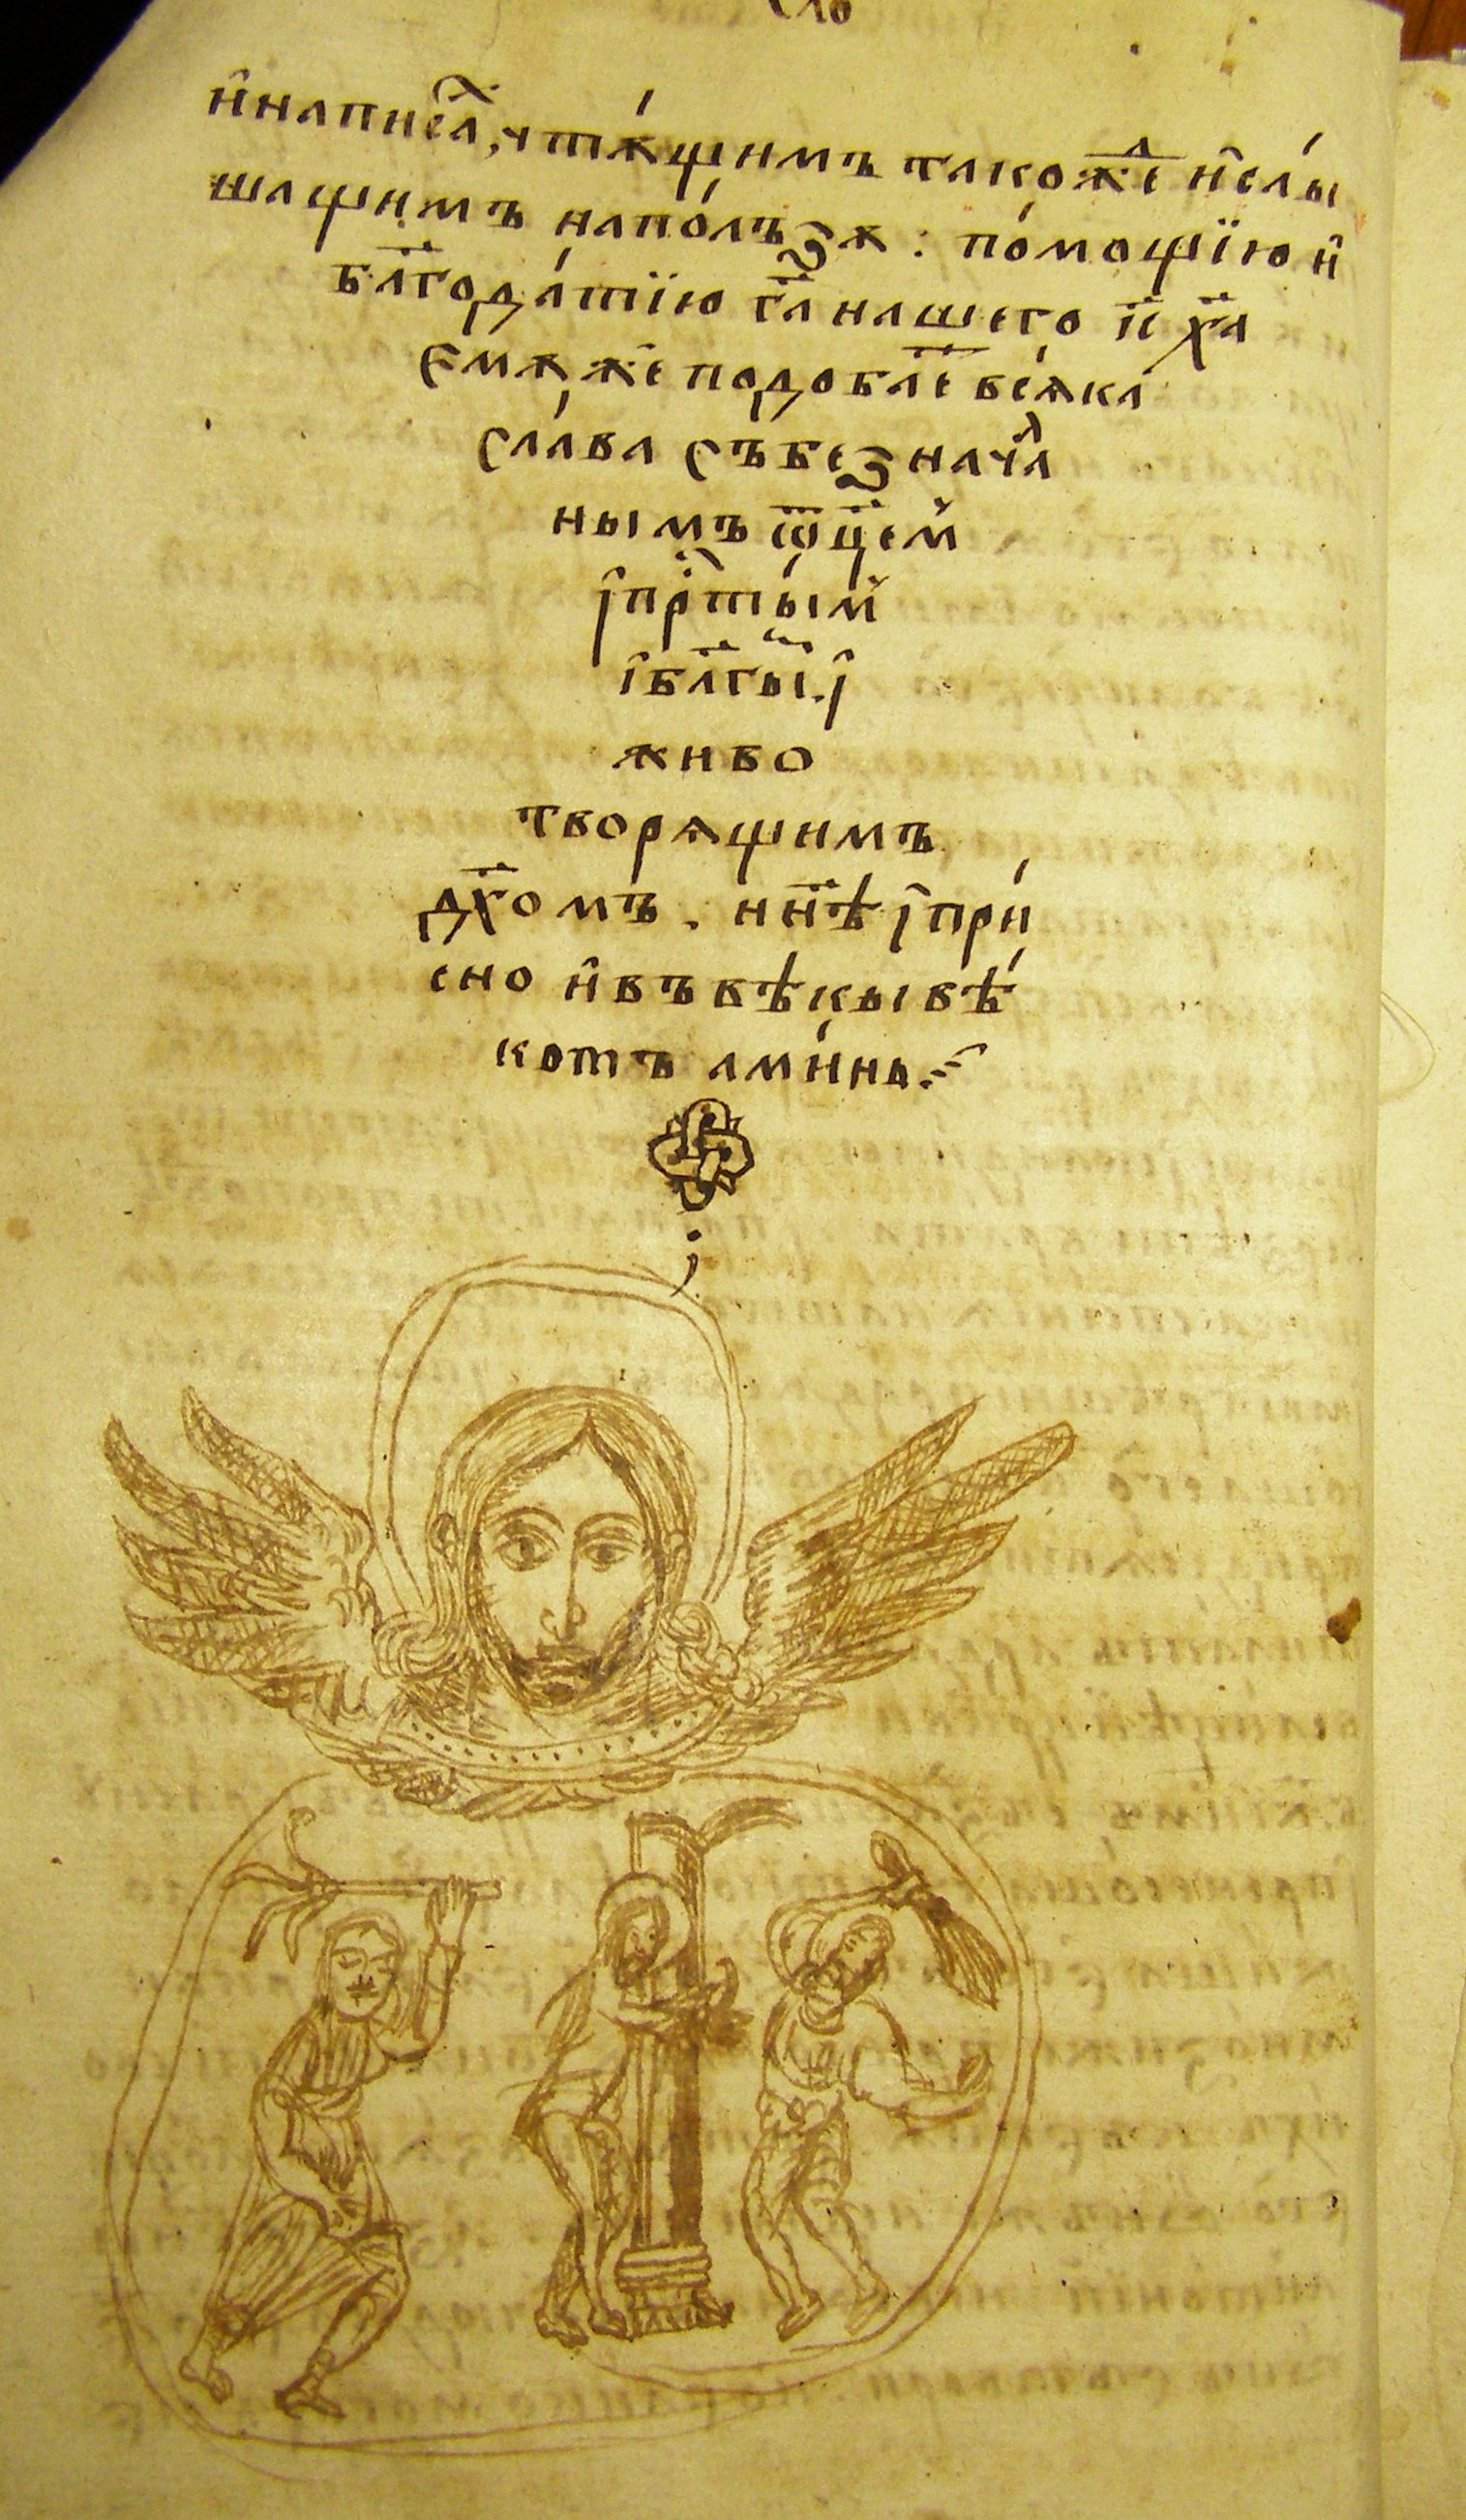 и҆написа̑, чтѫ́щимъ такоже и҆слы́
шащимъ напо́лъꙁѫ : по́мощїю и҆
бл҃года́тїю га҃ нашего і҃і х҃а
Ємꙋже подобае҃ всѣка
сла́ва събеꙁнача̑л
нымъ ѿц҃ем̾
і҆пр҃ты́м̾
і҆бл҃гы̑.і҆
живо
творѧщимъ
дх҃омъ . нн҃ѣ і҆при́
сно и҆въвѣкывѣ́
комъ ами́нь